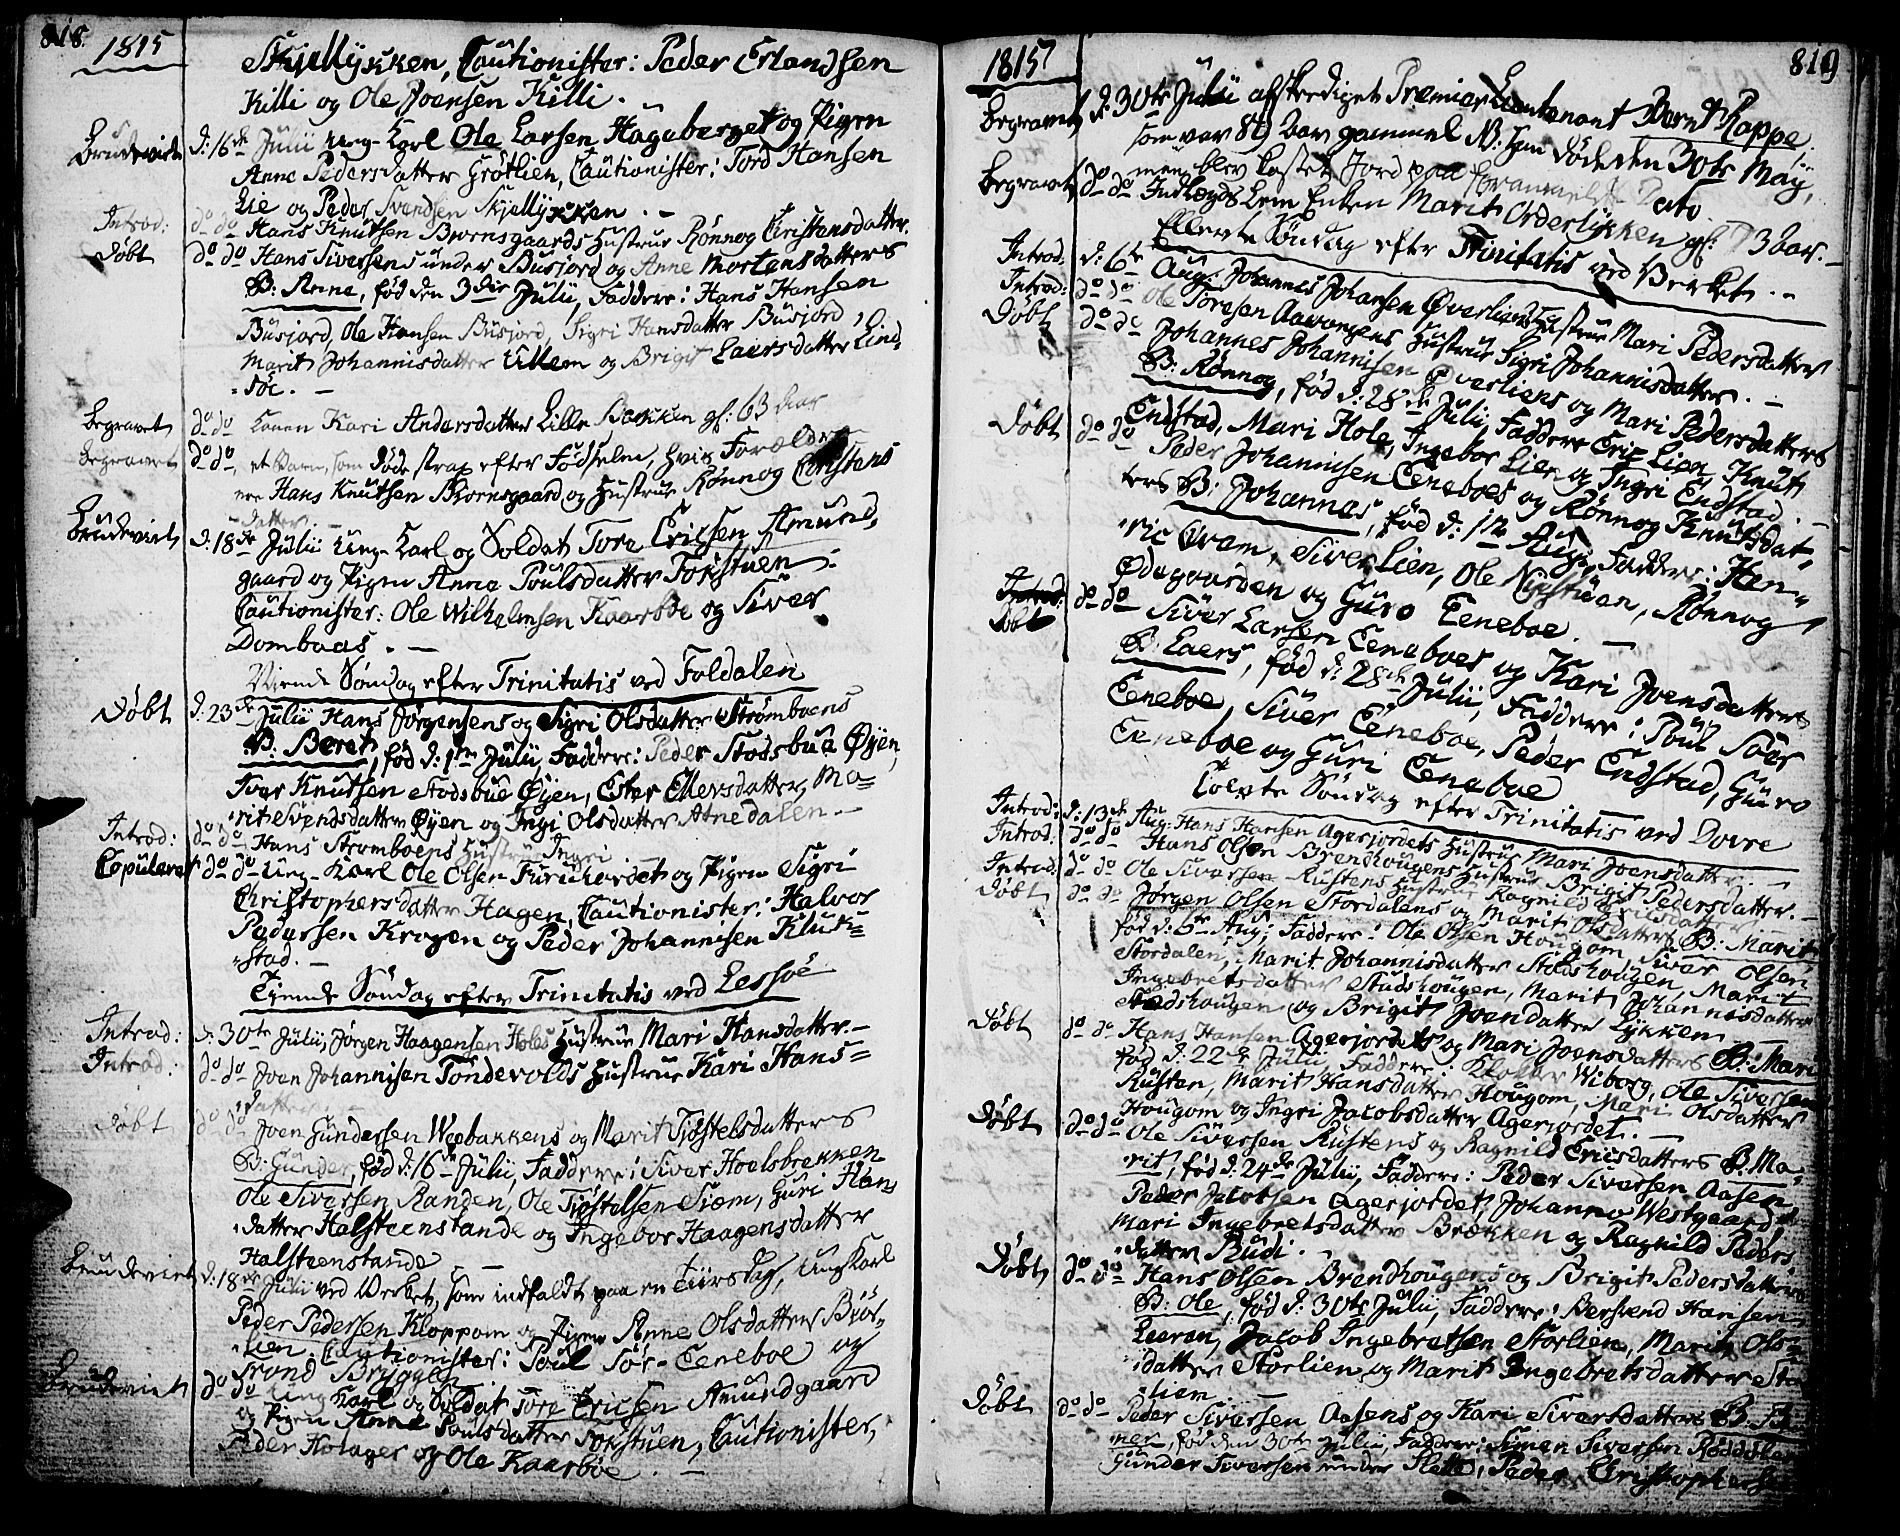 818.
1815
Skjellykken, Cautionister: Peder Erlandsen
Killi og Ole Joensen Killi.
Brudeviet d: 16de Julii Ung-Karl Ole Larsen Hageberget og Pigen
Anne Pedersdatter Grötlien, Cautionister: Tord Hansen
Lie og Peder Svendsen Skjellykken. -
Introd: do do Hans Knutsen Bjornsgaards Hustrue Rönnog Christensdatter.
Döbt do do Hans Siversens under Busjord og Anne Mortensdatters
B: Anne, föd den 3die Julii, Faddere: Hans Hansen
Busjord, Ole Hansen Busjord, Sigri Hansdatter Busjord,
Marit Johannisdatter Ullem og Brigit Laersdatter Lind-
söe. -
Begravet do do Konen Kari Andersdatter Lille Bakken gl: 63 Aar
Begravet do do et Barn, som döde strax efter Födselen, hvis Forældre
ere Hans Knutsen Bjornsgaard og Hustrue Rönnog Christens
datter -
Brudeviet d: 18de Julii Ung-Karl og Soldat Tore Ericsen Amund-
gaard og Pigen Anne Poulsdatter Tofstuen.
Cautionister: Ole Wilhelmsen Kaarböe og Siver
Dombaas. -
Niende Söndag efter Trinitatis ved Foldalen
Döbt d: 23de Julii Hans Jørgensens og Sigri Olsdatter Strömboens
B: Beret, föd d: 1ste Julii, Faddere: Peder Stodsbue Øjen,
Iver Knutsen Stodsbue Øjen, Ester Ellersdatter, Ma-
rit Svendsdatter Øjen og Ingri Olsdatter Atnedalen -
Introd: do do Hans Stromboens Hustrue Ingri
Copuleret do do Ung-Karl Ole Olsen Furuhovdet og Pigen Sigri
Christophersdatter Hagen, Cautionister: Halvor
Pedersen Krogen og Peder Johannisen Kluk-
stad. -
Tiende Söndag efter Trinitatis ved Lessöe
Introd: d: 30te Julii, Jørgen Haagensen Holes Hustrue Mari Hansdatter. -
Introd: do do Joen Johannisen Töndevolds Hustrue Kari Hans-
datter -
Döbt do do Joen Gundersen Weebakkens og Marit Tjöstelsdatters
B: Gunder, föd d: 16de Julii, Faddere: Siver Hoelsbrekken
Ole Siversen Randen, Ole Tjöstelsen Siem, Guri Hans
datter Halsteenstande og Ingebor Haagensdatter
Halsteenstande -
Brudeviet d: 18de Julii ved Verket, som indfaldt paa en Tiirsdag, Ung Karl
Peder Pedersen Kloppom og Pigen Anne Olsdatter Bröt-
lien. Cautionister: Poul Sör-Eeneboe og
Trond Bryggen
Brudeviet do do Ung Karl og Soldat Tore Ericsen Amundgaard
og Pigen Anne Poulsdatter Tofstuen, Cautionister,
Peder Holager og Ole Kaarböe. -
1815
819
Begravet d: 30te Julii afskediget Premier Lieutenant Bernt Rappe.
som var 89 Aar gammel NB: han döde den 30te May,
men blev kastet Jord paa foranmeldte Dato.
Begravet do do Indlægds Lem Enken Marit Orderlykken gl: 73 Aar. -
Ellevte Söndag efter Trinitatis ved Verket. -
Introd: d: 6te Aug: Johannes Johansen Øverliens Hustrue Mari Pedersdatter
Introd: do do Ole Toresen Aavangens Hustrue Sigri Johannisdatter. -
Döbt do do Johannes Johannisen Øverliens og Mari Pedersdatters
B: Rönnog, föd d: 28de Julii, Faddere Eric Lien, Knut
Endstad, Mari Hole, Ingebor Lien og Ingri Endstad. -
Döbt do do Peder Johannisen Eeneboes og Rönnog Knutsdat-
ters B: Johannes, föd d: 1ste Aug: Faddere: Hen-
ric Qvam, Siver Lien, Ole Nystuen, Rönnog
Ødegaarden og Guro Eeneboe. -
Introd:
Döbt do do Siver Larsen Eeneboes og Kari Joensdatters
B: Laers, föd d: 28de Julii, Faddere: Poul Söer
Eeneboe, Siver Eeneboe, Peder Endstad, Guro
Eeneboe og Guri Eeneboe
Tolvte Söndag efter Trinitatis ved Dovre
Introd: d: 13de Aug: Hans Hansen Agerjordets Hustrue Mari Joensdatter. -
Introd. do do Hans Olsen Brendhougens Hustrue Brigit Pedersdatter. -
Introd: do do Ole Siversen Rustens Hustrue Ragnild Ericsdatter
Döbt do do Jørgen Olsen Stordalens og Marit Olsdatters B: Marit
föd d: 5te Aug: Faddere: Ole Olsen Hougom, Siver Olsen
Stordalen, Marit Johannisdatter Stodshougen, Marit
Ingebretsdatter Studshougen, Marit Johannesdatter
Stodshougen og Brigit Joendatter Lykken -
Döbt do do Hans Hansen Agerjordets og Mari Joensdatters B: Mari
föd d: 22de Julii, Faddere: Klokker Wiborg, Ole Siversen
Rusten, Marit Hansdatter Hougom, Mari Olsdatter
Hougom og Ingri Jacobsdatter Agerjordet. -
Döbt do do Ole Siversen Rustens og Ragnild Ericsdatters B: Ma-
rit, föd d: 24de Julii, Faddere: Peder Siversen Aasen
Peder Jacobsen Agerjordet, Johanne Westgaard
Mari Ingebretsdatter Brækken og Ragnild Peders
datter Budi.
Döbt do do Hans Olsen Brendhougens og Brigit Pedersdatters
B: Ole, föd d: 30te Julii, Faddere: Bersvend Hansen
Leeran, Jacob Ingebretsen Storlien, Marit Ols-
datter Storlien og Marit Ingebretsdatter Stor
lien -
Döbt do do Peder Siversen Aasens og Kari Siversdatters B:
mer, föd den 30te Julii, Faddere: Simen Siversen
Gunder Siversen under Slette, Peder Christophersen